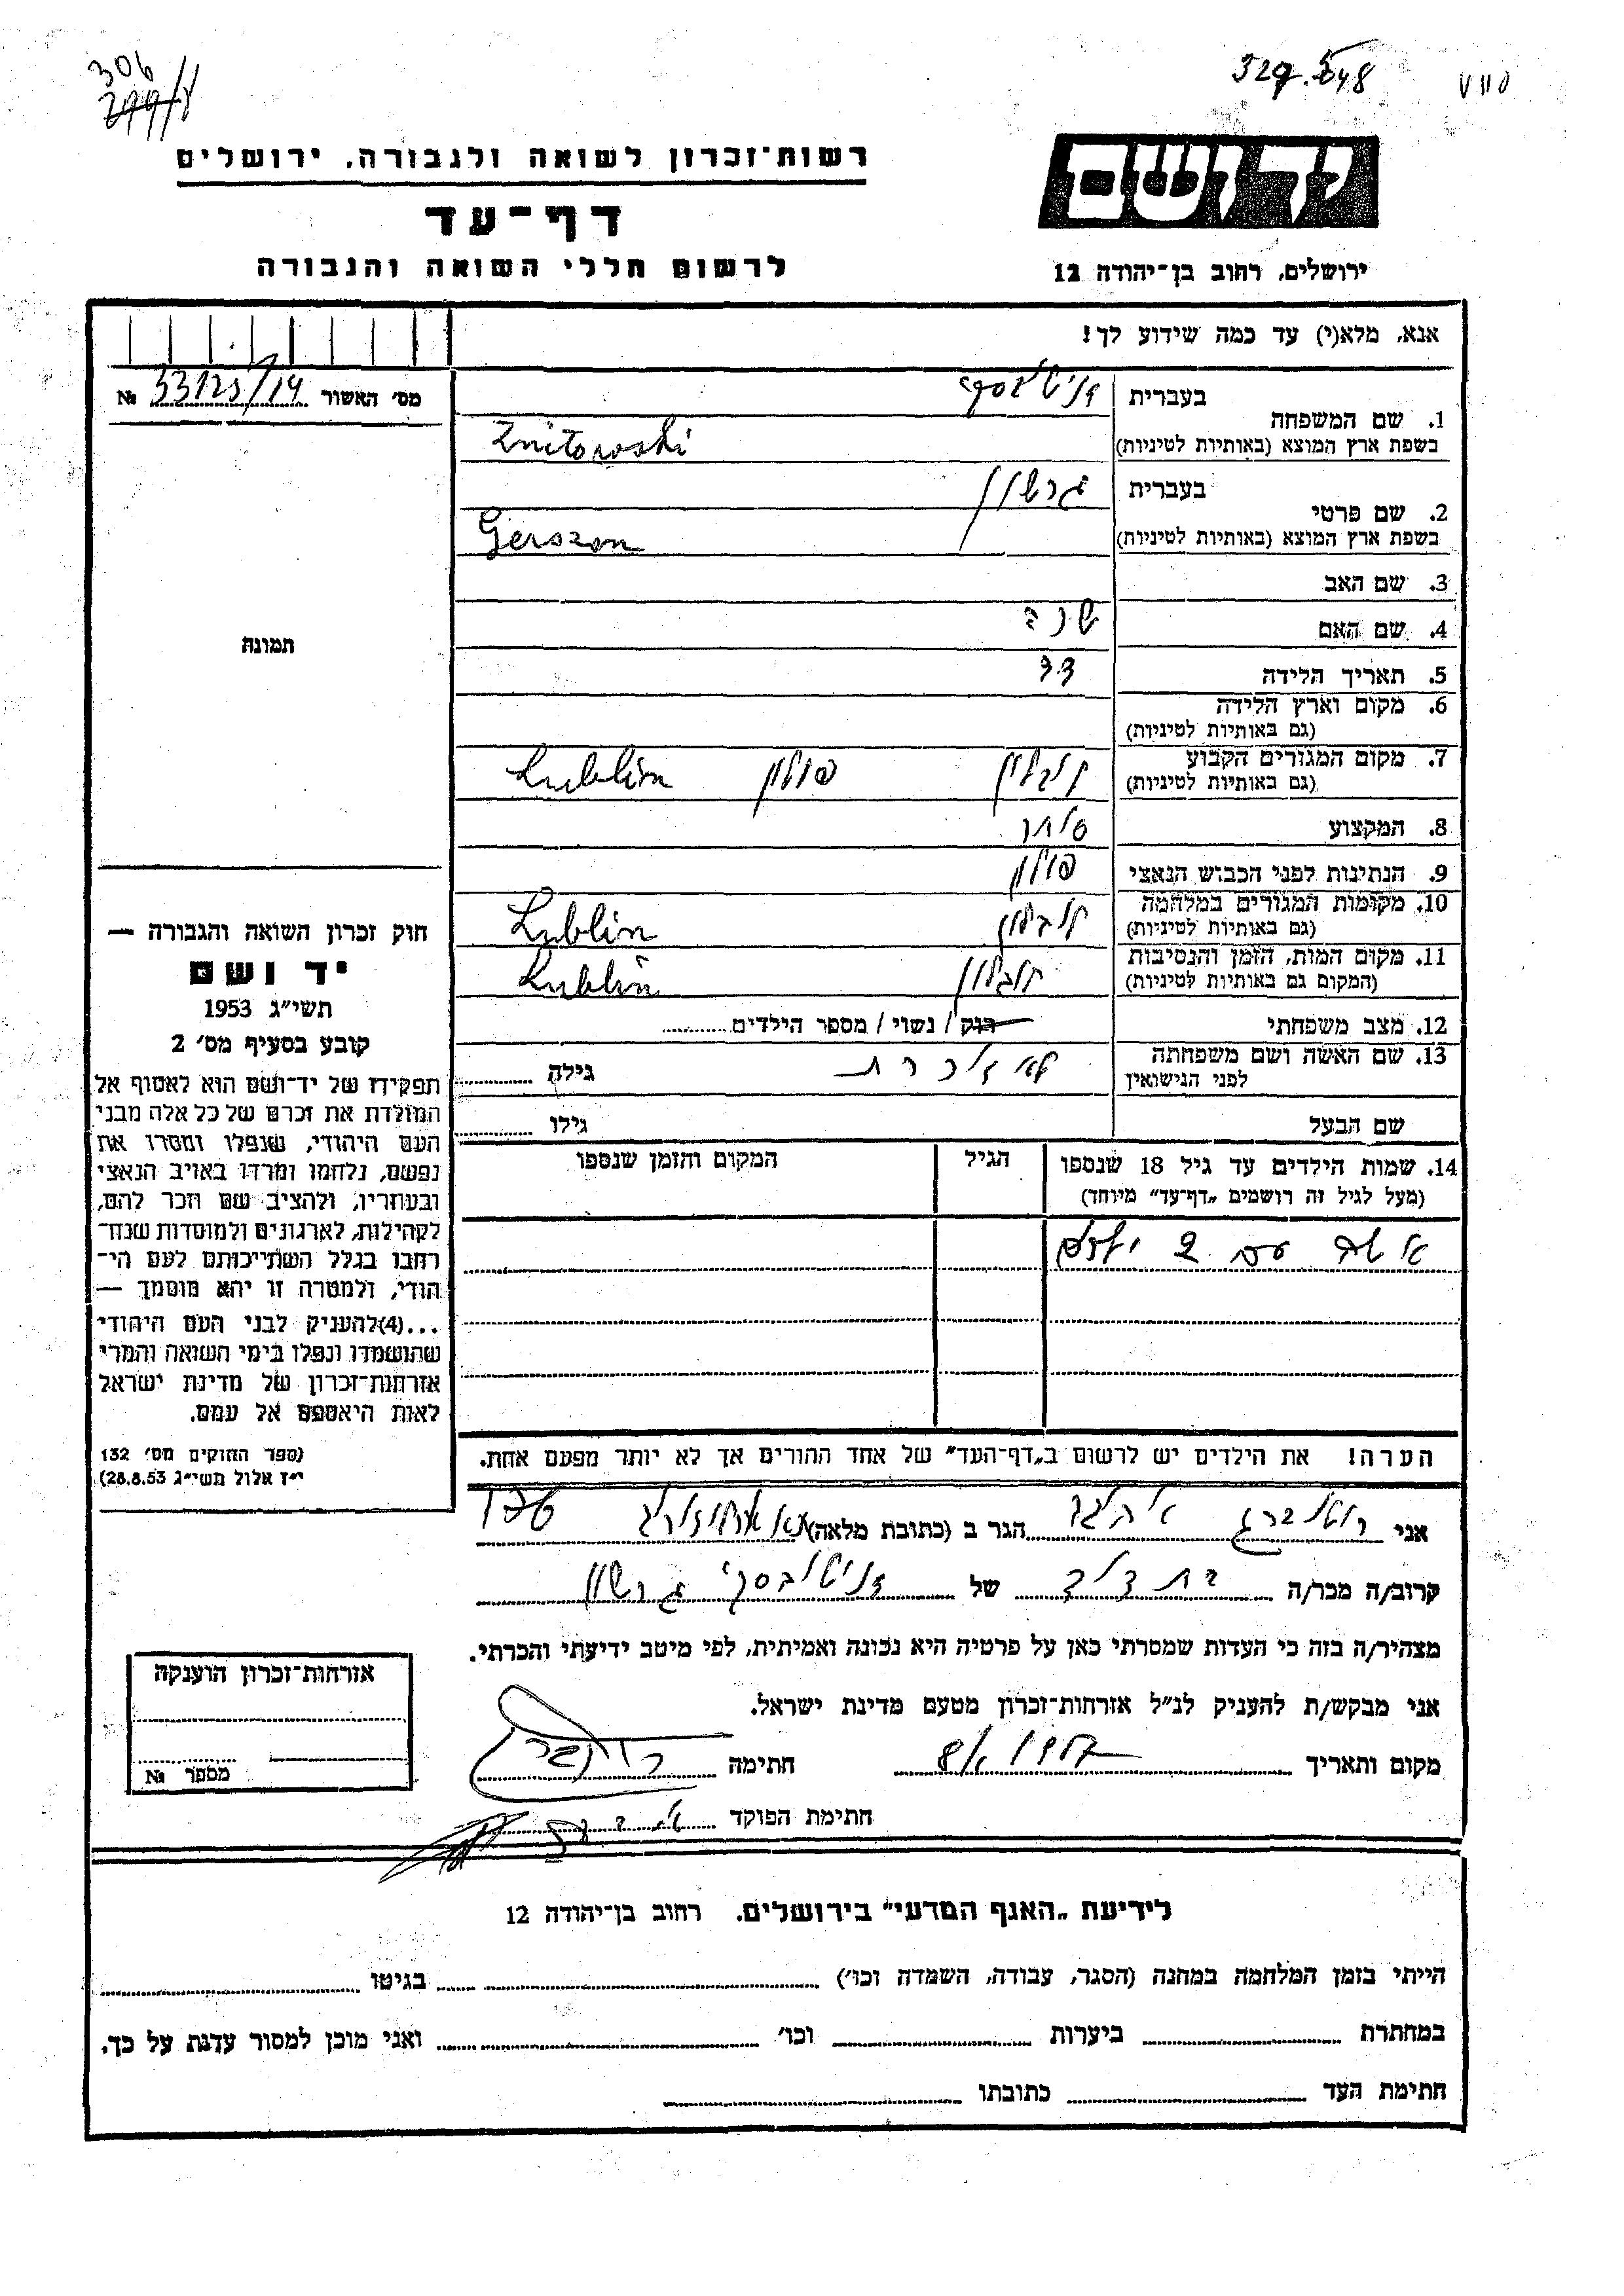 306
299/8
329.548
VIID
רשות־זכרון לשואה ולגבורה, ירושלים
יד ושם
דף־עד
לרשום חללי השואה והגבורה
ירושלים, רחוב בן־יהודה 12
אנא, מלא(י) עד כמה שידוע לך!
מס׳ האשור № 33125/14
1. שם המשפחה
בעברית זניטובסקי
בשפת ארץ המוצא (באותיות לטיניות) Znitowski
2. שם פרטי
בעברית גרשון
בשפת ארץ המוצא (באותיות לטיניות) Gerszon
3. שם האב
4. שם האם שרה
5. תאריך הלידה
6. מקום וארץ הלידה
(גם באותיות לטיניות)
7. מקום המגורים הקבוע
(גם באותיות לטיניות) לובלין פולין Lublin
8. המקצוע סוחר
9. הנתינות לפני הכבוש הנאצי פולין
10. מקומות המגורים במלחמה
(גם באותיות לטיניות) לובלין Lublin
11. מקום המות, הזמן והנסיבות
(המקום גם באותיות לטיניות) לובלין Lublin
12. מצב משפחתי רווק / נשוי / מספר הילדים
13. שם האשה ושם משפחתה
לפני הנישואין לא זוכרת גילה
שם הבעל גילו
14. שמות הילדים עד גיל 18 שנספו
(מעל לגיל זה רושמים „דף־עד” מיוחד)
הגיל
המקום והזמן שנספו
אשה עם 2 ילדים
הערה! את הילדים יש לרשום ב„דף־העד” של אחד ההורים אך לא יותר מפעם אחת.
תמונה
חוק זכרון השואה והגבורה —
יד ושם
תשי״ג 1953
קובע בסעיף מס׳ 2
תפקידו של יד־ושם הוא לאסוף אל
המולדת את זכרם של כל אלה מבני
העם היהודי, שנפלו ומסרו את
נפשם, נלחמו ומרדו באויב הנאצי
ובעוזריו, ולהציב שם וזכר להם,
לקהילות, לארגונים ולמוסדות שנח־
רבו בגלל השתייכותם לעם הי־
הודי, ולמטרה זו יהא מוסמך —
...(4)להעניק לבני העם היהודי
שהושמדו ונפלו בימי השואה והמרי
אזרחות־זכרון של מדינת ישראל
לאות היאספם אל עמם.
(ספר החוקים מס׳ 132
י״ז אלול תשי״ג 28.8.53)
אני הגר ב (כתובת מלאה)
קרוב/ה מכר/ה בת דוד של זניטובסקי גרשון
מצהיר/ה בזה כי העדות שמסרתי כאן על פרטיה היא נכונה ואמיתית, לפי מיטב ידיעתי והכרתי.
אני מבקש/ת להעניק לנ״ל אזרחות־זכרון מטעם מדינת ישראל.
מקום ותאריך חתימה
חתימת הפוקד
אזרחות־זכרון הוענקה
מספר №
לידיעת „האגף המדעי” בירושלים, רחוב בן־יהודה 12
הייתי בזמן המלחמה במחנה (הסגר, עבודה, השמדה וכו׳) בגיטו
במחתרת ביערות וכו׳ ואני מוכן למסור עדות על כך.
חתימת העד כתובתו